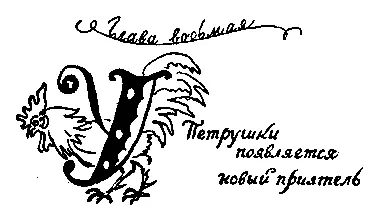 Глава восьмая
У Петрушки
появляется
новый приятель